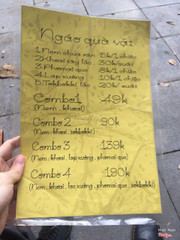 Ngáo quà vặt
1. Nem chua rán
2. Khoai tây lắc 30k/
3. Phomai que
4. Lạp xưởng 10k/1 chiếc
5. Tokbokki lắc 20k/
Combo 1 49k
(Nem, khoai)
Combo 2 90k
(Nem, khoai, tokbokki)
Combo 3 139k
(Nem, khoai, lạp xưởng, phomai que)
Combo 4 190k
(Nem, khoai, lạp xưởng, phomai que, tokbokki)